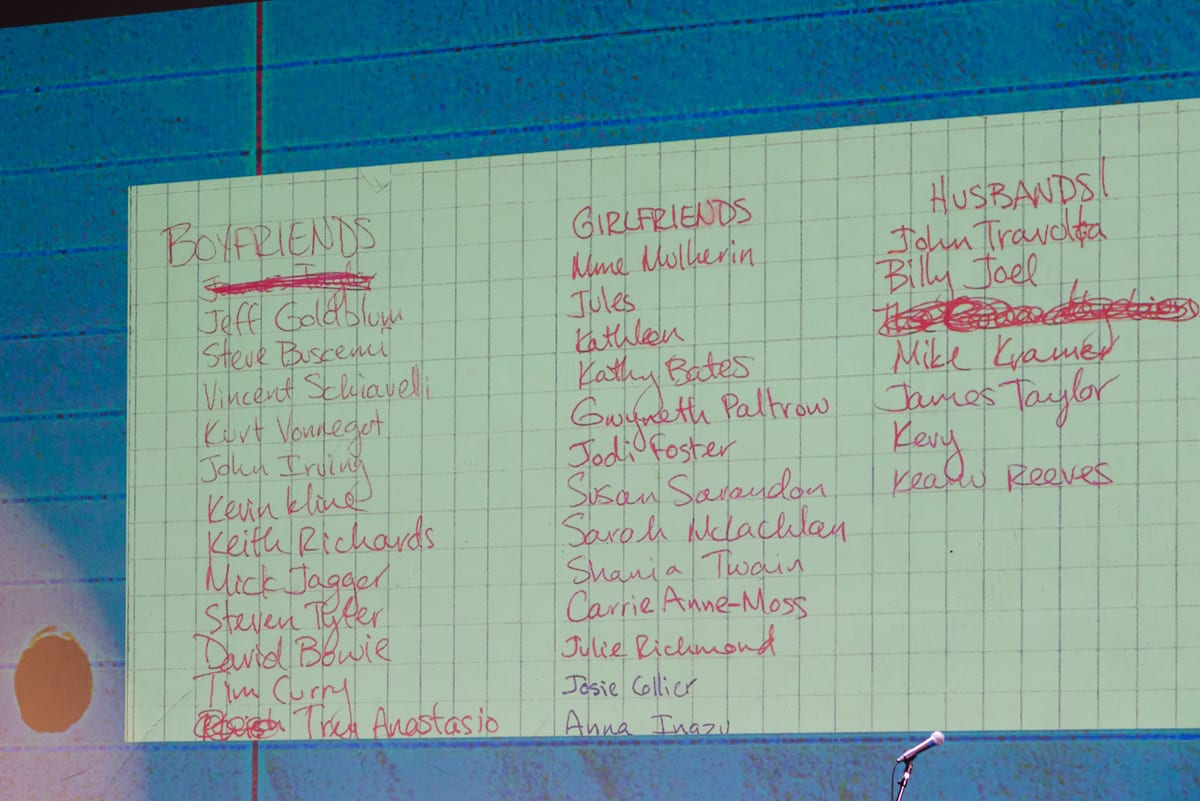 BOYFRIENDS
Jeff Goldblum
Steve Buscemi
Vincent Schiavelli
Kurt Vonnegot
John Irving
Kevin Kline
Keith Richards
Mick Jagger
Steven Tyler
David Bowie
Tim Curry
Trey Anastasio
GIRLFRIENDS
Mme Mulherin
Jules
Kathleen
Kathy Bates
Gwyneth Paltrow
Jodi Foster
Susan Sarandon
Sarah McLachlan
Shania Twain
Carrie Anne-Moss
Julie Richmond
Josie Collier
Anna
HUSBANDS!
John Travolta
Billy Joel
Mike Kramer
James Taylor
Kevy
Keanu Reeves